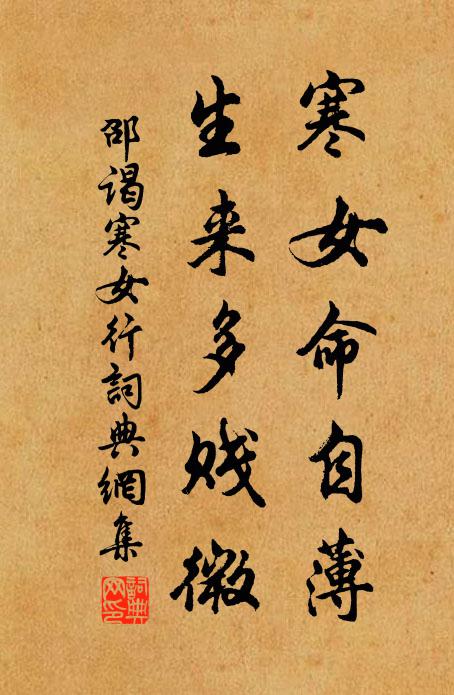 寒女命自薄
生来多贱微
邵谒寒女行詞典網集
詞典网印